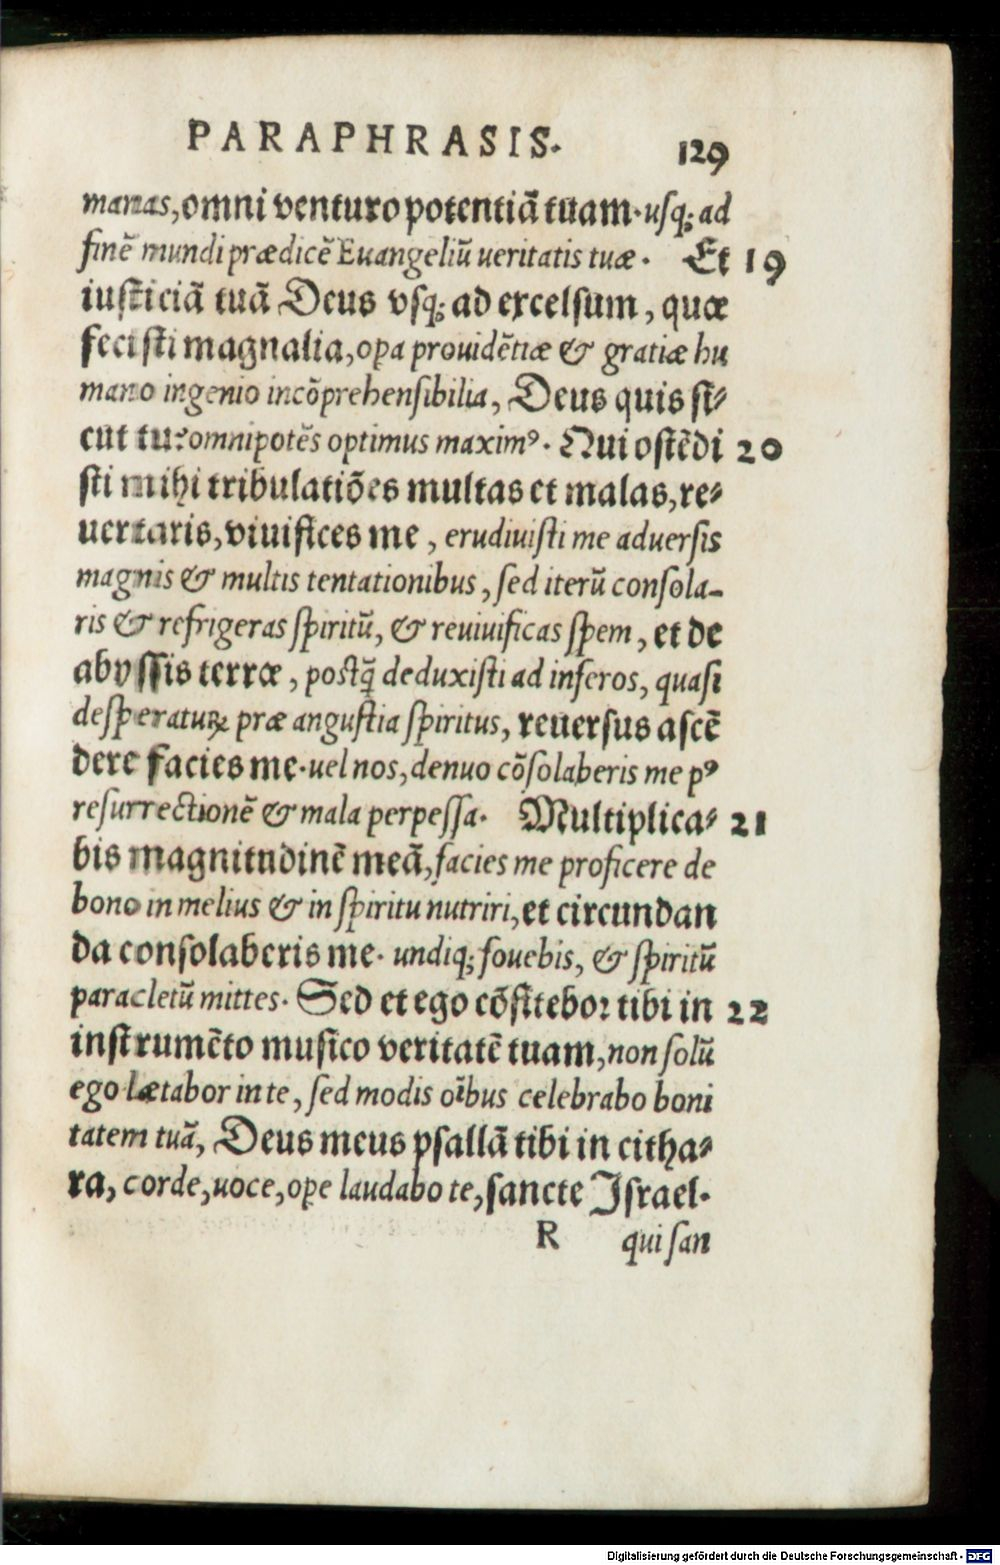 PARAPHRASIS. 129
manas, omni venturo potentiā tuam. usq; ad
finē mundi prædicē Euangeliū ueritatis tuæ. Et 19
iusticiā tuā Deus vsq; ad excelsum, quæ
fecisti magnalia, opa prouidētiæ & gratiæ hu
mano ingenio incōprehensibilia, Deus quis si-
cut tu? omnipotēs optimus maximꝰ. Qui ostēdi 20
sti mihi tribulatiōes multas et malas, re-
uertaris, viuifices me, erudiuisti me aduersis
magnis & multis tentationibus, sed iterū consola-
ris & refrigeras spiritū, & reuiuificas spem, et de
abyssis terræ, postq̄ deduxisti ad inferos, quasi
desperatuꝝ præ angustia spiritus, reuersus ascē
dere facies me. uel nos, denuo cōsolaberis me pꝰ
resurrectionē & mala perpessa. Multiplica- 21
bis magnitudinē meā, facies me proficere de
bono in melius & in spiritu nutriri, et circundan
da consolaberis me. undiq; fouebis, & spiritū
paracletū mittes. Sed et ego cōfitebor tibi in 22
instrumēto musico veritatē tuam, non solū
ego lætabor in te, sed modis oībus celebrabo boni
tatem tuā, Deus meus psallā tibi in citha-
ra, corde, uoce, ope laudabo te, sancte Israel.
R qui san
Digitalisierung gefördert durch die Deutsche Forschungsgemeinschaft - DFG